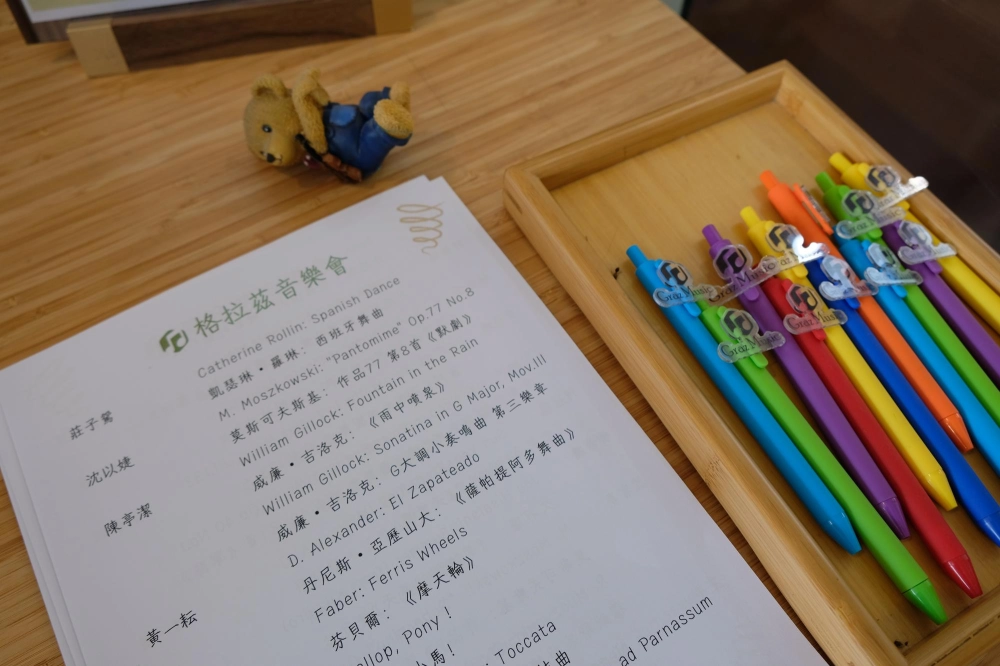 格拉茲音樂會
Catherine Rollin: Spanish Dance
莊子駕 凱瑟琳・羅琳: 西班牙舞曲
M. Moszkowski: "Pantomime" Op.77 No.8
沈以婕 莫斯可夫斯基: 作品77 第8首《默劇》
William Gillock: Fountain in the Rain
陳亭潔 威廉・吉洛克: 《雨中噴泉》
William Gillock: Sonatina in G Major, Mov.III
威廉・吉洛克: G大調小奏鳴曲 第三樂章
D. Alexander: El Zapateado
丹尼斯・亞歷山大: 《薩帕提阿多舞曲》
Faber: Ferris Wheels
黃一耘 芬貝爾: 《摩天輪》
allop, Pony !
小馬!
: Toccata
ad Parnassum
Graz Music
Graz Music
Graz Music